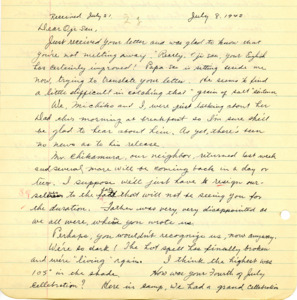 Received July 21
July 9, 1942
Dear Oji San,
Just received your letter and was glad to know that
you're not melting away. "Really, Oji san, your English
has certainly improved! Papa san is sitting beside me
now, trying to translate your letter. He seems to find
a little difficult in catching that "grain of salt" business
Wa, Michiko and I, were just talking about her
Dad this morning at breakfast so I'm sure she'll
be glad to hear about him. As yet, there's been
no news as to his release.
Mr. Chikamura, our neighbor, returned last week
and several more will be coming back in a day or
two. I suppose we'll just have to resign our-
selves to the fact that will not be seeing you for
the duration. Father was very, very disappointed as
we all were, when you wrote us.
Perhaps, you wouldn't recognize us, now anyway.
We're so dark! The hot spell has finally broken
and we're "living" again. I think the highest was
105° in the shade. How was your Fourth of July
Celebration? Here in camp, we had a grand celebration